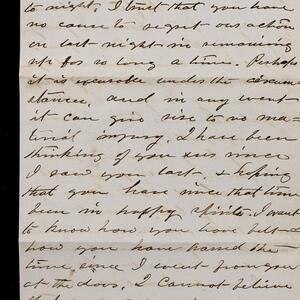 to night, I trust that you have
no cause to regret our action
on last night in remaining
up for so long a time. Perhaps
it is excusable under the circum
stances, and in any event
it can give rise to no ma
terial injury. I have been
thinking of you ever since
I saw you last, & hoping
that you have since that time
been in happy spirits. I want
to know how you have felt &
how you have passed the
time since I went from you
at the door. I cannot believe